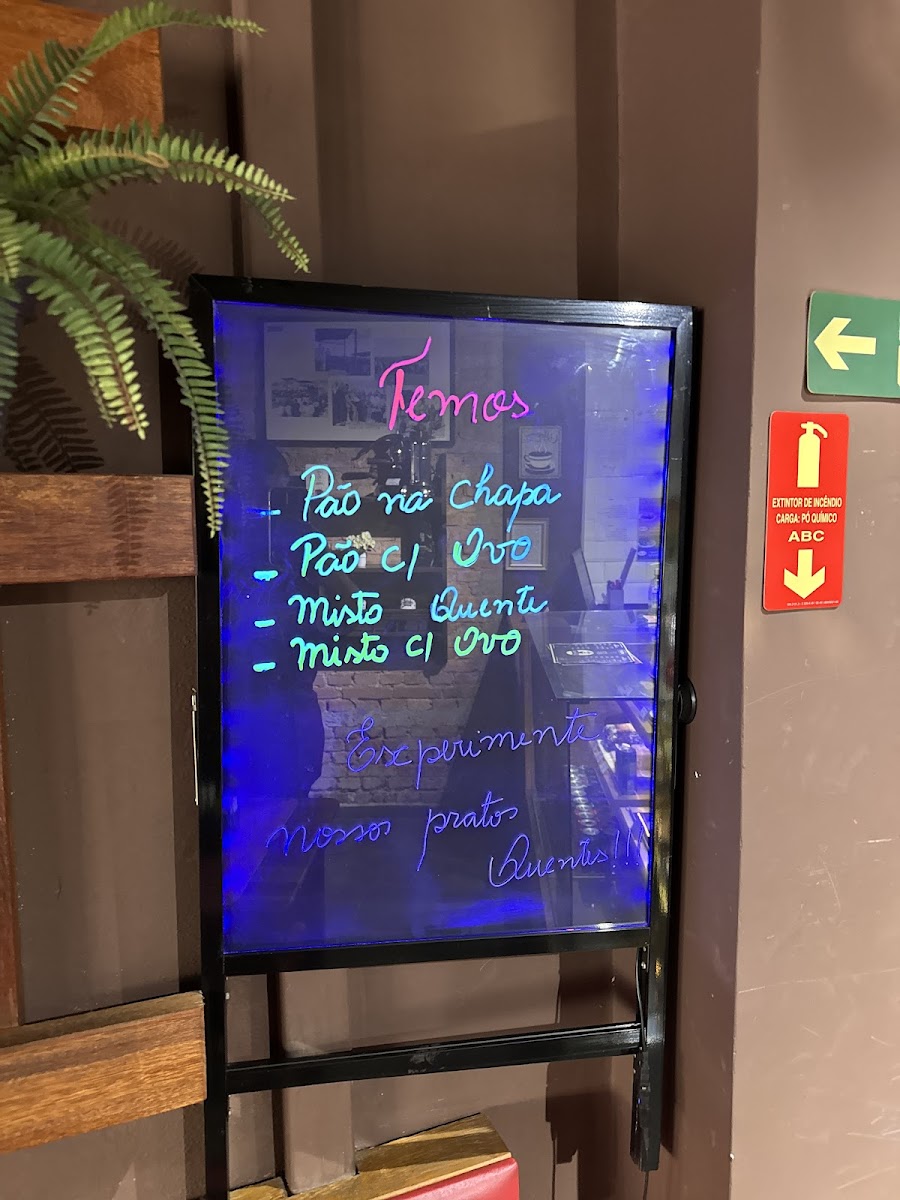 Temos
- Pão na chapa
- Pão c/ Ovo
- Misto Quente
- Misto c/ Ovo
Experimente
nossos pratos
Quentes!!!
EXTINTOR DE INCÊNDIO
CARGA: PÓ QUÍMICO
ABC